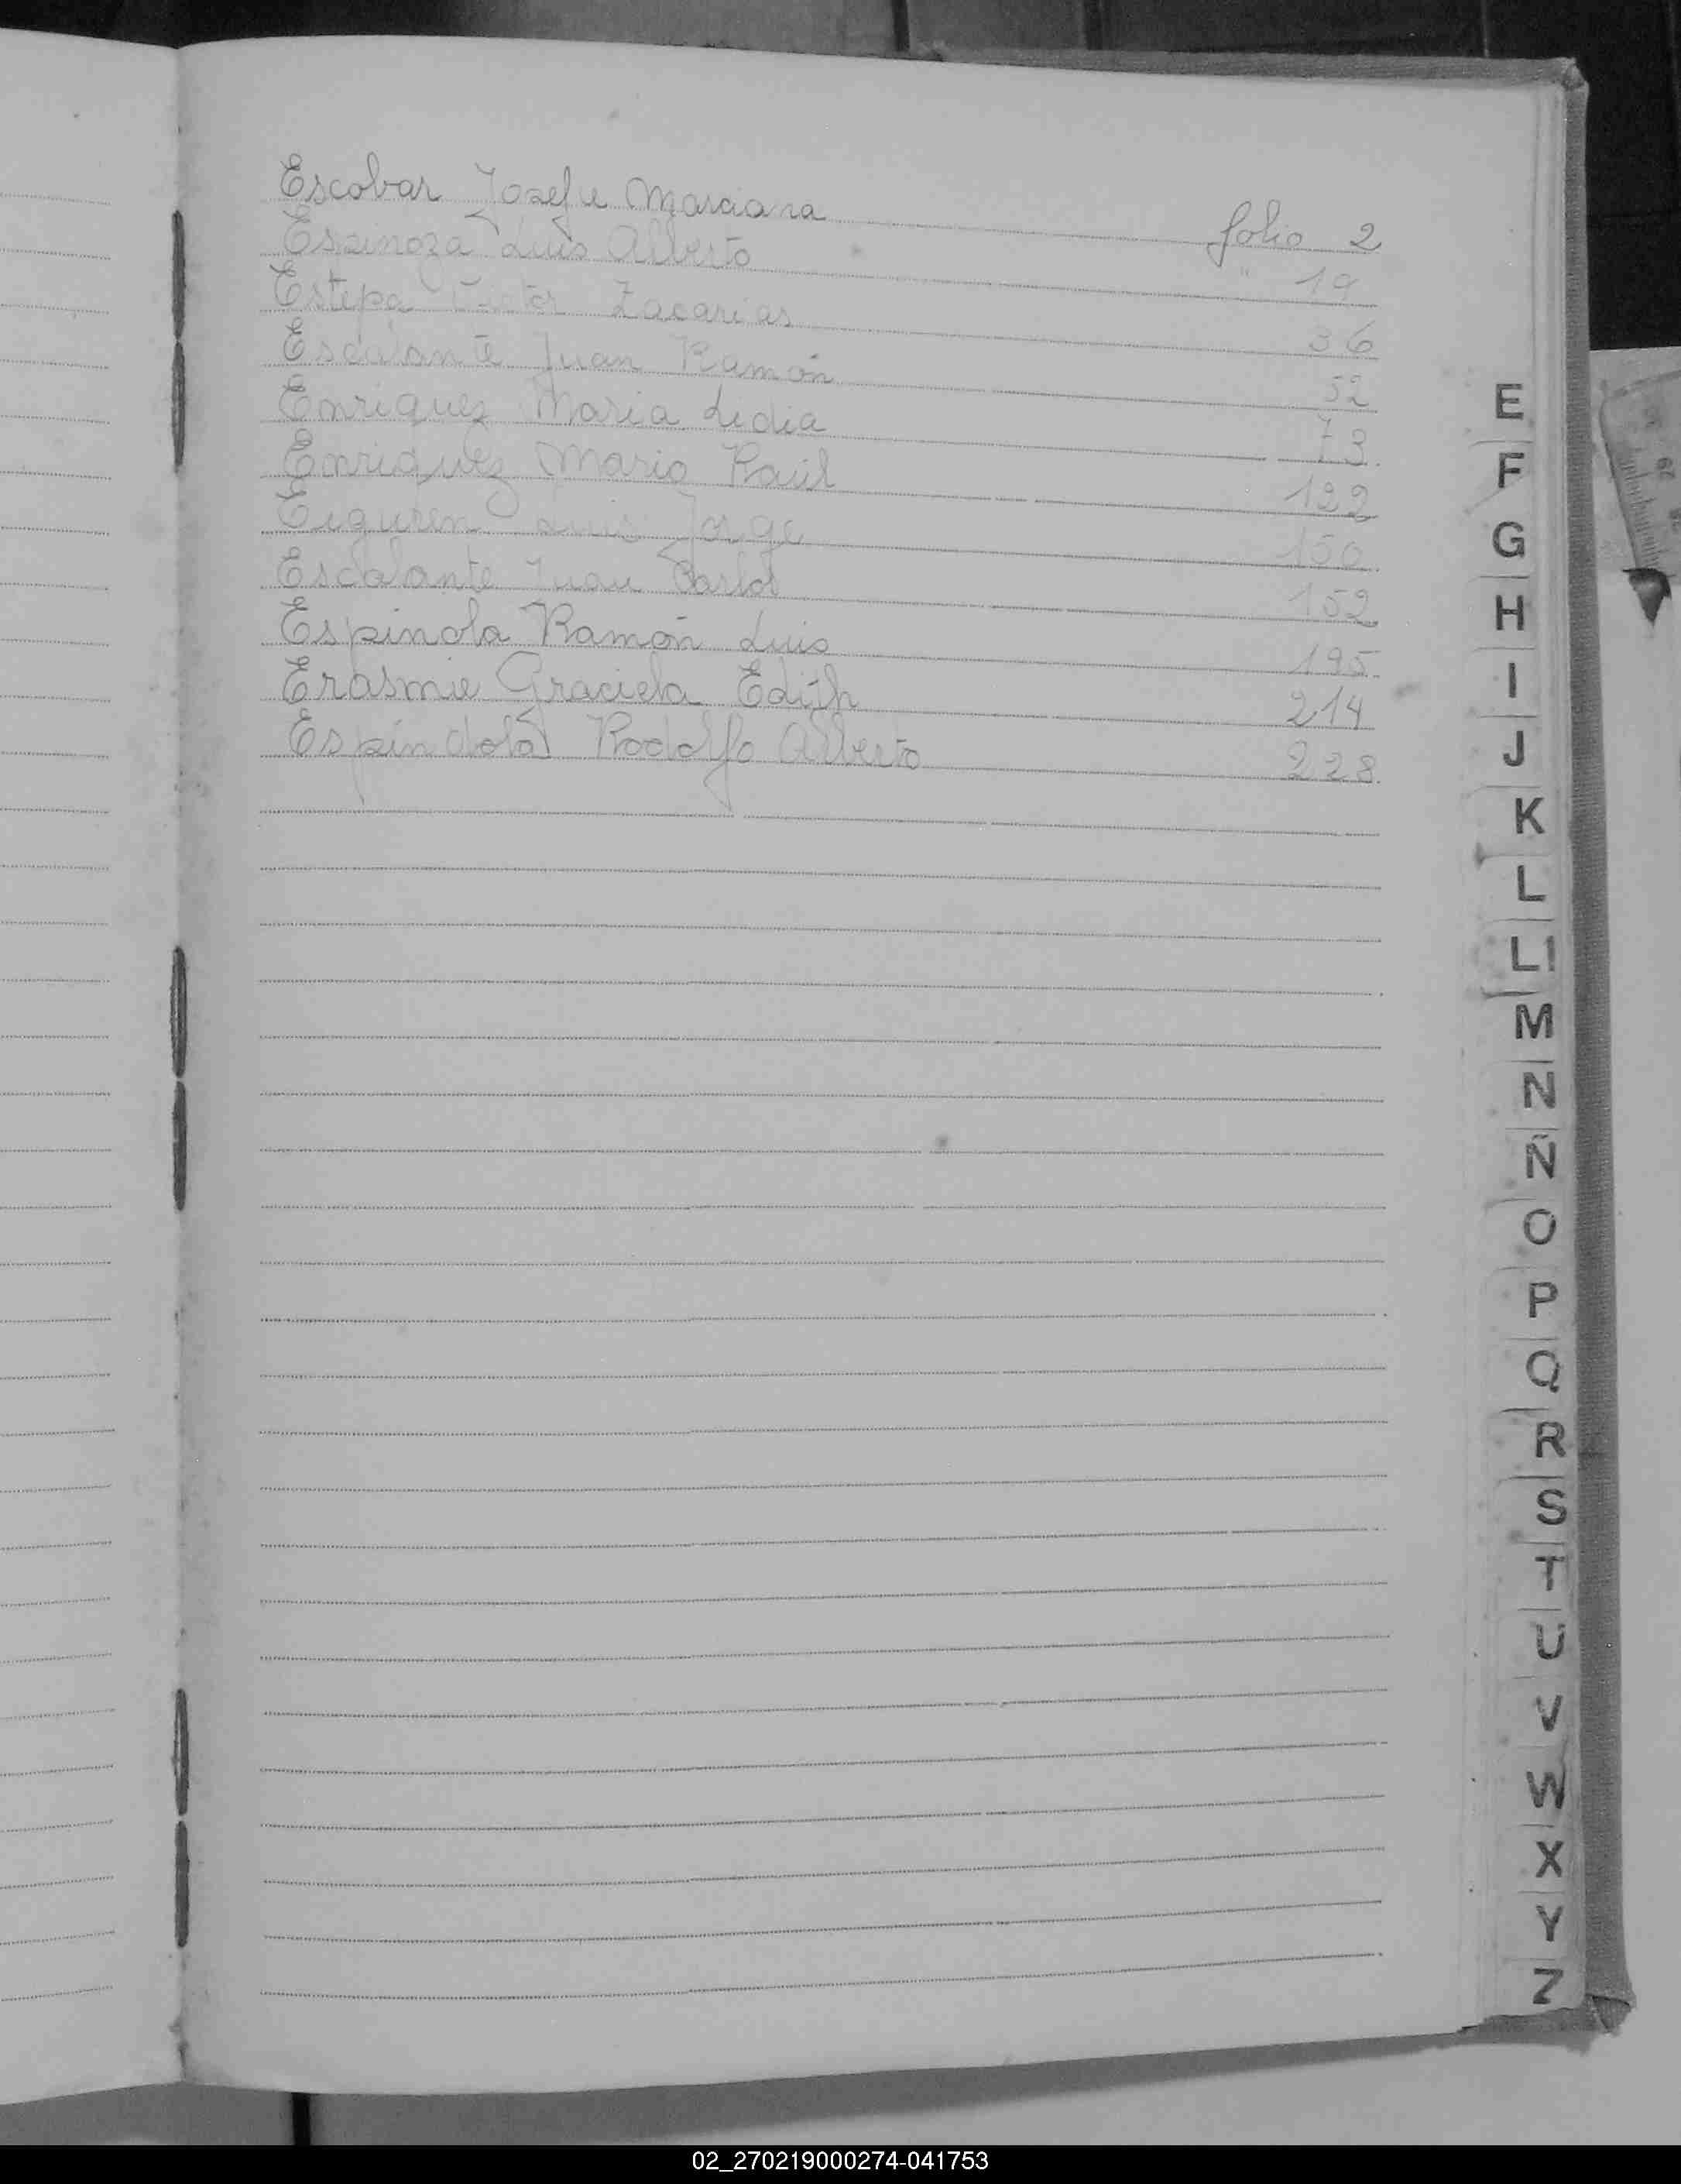 Escobar Josefa Marciana folio 2
Espinoza Luis Alberto " 19
Estepa Zacarias 36
Escalante Juan Ramón 52
Enriquez Maria Lidia 73
Enriquez Mario Raúl 122
Eiguren Luis Jorge 150
Escalante Juan Carlos 152
Espinola Ramón Luis 195
Erasmie Graciela Edith 214
Espindola Rodolfo Alberto 228
E
F
G
H
I
J
K
L
Ll
M
N
Ñ
O
P
Q
R
S
T
U
V
W
X
Y
Z
02_270219000274-041753